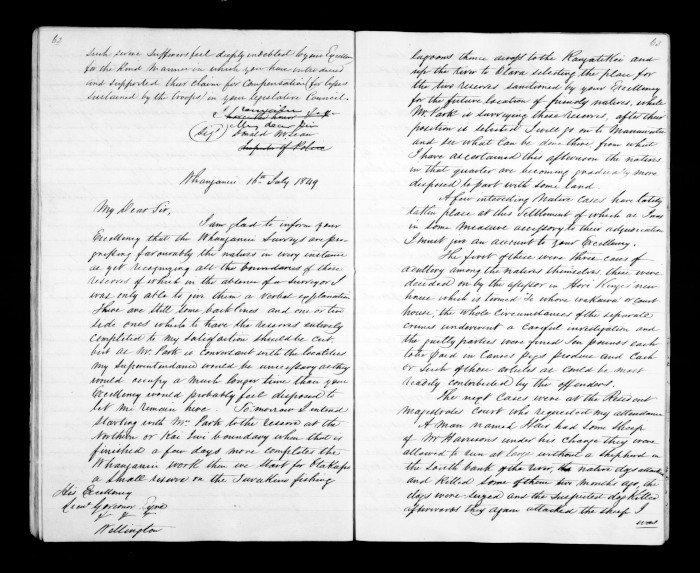 62
such severe sufferers feel deeply indebted by your Excellency
for the kind manner in which you have introduced
and supported their claim for compensation (for losses
sustained by the troops) in your legislative Council.
I remain
have the honor
My dear Sir
(Sigd) Donald McLean
Inspector of Police
Whanganui 16th July 1849
My Dear Sir,
I am glad to inform your
Excellency that the Whanganui Surveys are pro-
gressing favourably the natives in every instance
as yet recognizing all the boundaries of those
reserves of which in the absence of a Surveyor I
was only able to give them a verbal explanation
There are still some back lines and one or two
side ones which to have the reserves entirely
completed to my satisfaction should be cut,
but as Mr. Park is conversant with the localities
my Superintendance would be unnecessary as they
would occupy a much longer time than your
Excellency would probably feel disposed to
let me remain here. Tomorrow I intend
starting with Mr. Park to the reserve at the
Northern or Kai Iwi boundary when that is
finished a few days more completes the
Whanganui work then we start for
a small reserve on the Turakina fishing
His Excellency
Lieut Governor Eyre
Wellington
63
lagoons thence across to the Rangatikei and
up the river to Parewa selecting the place for
the two reserves sanctioned by your Excellency
for the future location of friendly natives, while
Mr. Park is surveying those reserves, after their
position is selected I will go on to Manawatu
and see what can be done there, from what
I have ascertained this afternoon the natives
in that quarter are becoming gradually more
disposed to part with some land.
A few interesting Native cases have lately
taken place at this Settlement of which as I was
in some measure accessory to their adjudication
I must give an account to your Excellency.
The first of these were three cases of
adultery among the natives themselves, these were
decided on by the assessor in Hori Kingi's new
house which is termed Te whare whakawa or Court
house, the whole circumstances of the separate
crimes underwent a careful investigation and
the guilty parties were fined ten pounds each
to be paid in Canoes Pigs produce and Cash
or such of those articles as could be most
readily contributed by the offenders.
The next cases were at the Resident
Magistrates Court who requested my attendance
A man named Handr had some Sheep
of Mr Harrisons under his charge they were
allowed to run at large without a shepherd in
the South bank of the river, native dogs attacked
and killed some of them two months ago, the
dogs were seized and the suspected dog killed
afterwards they again attacked the sheep I
was